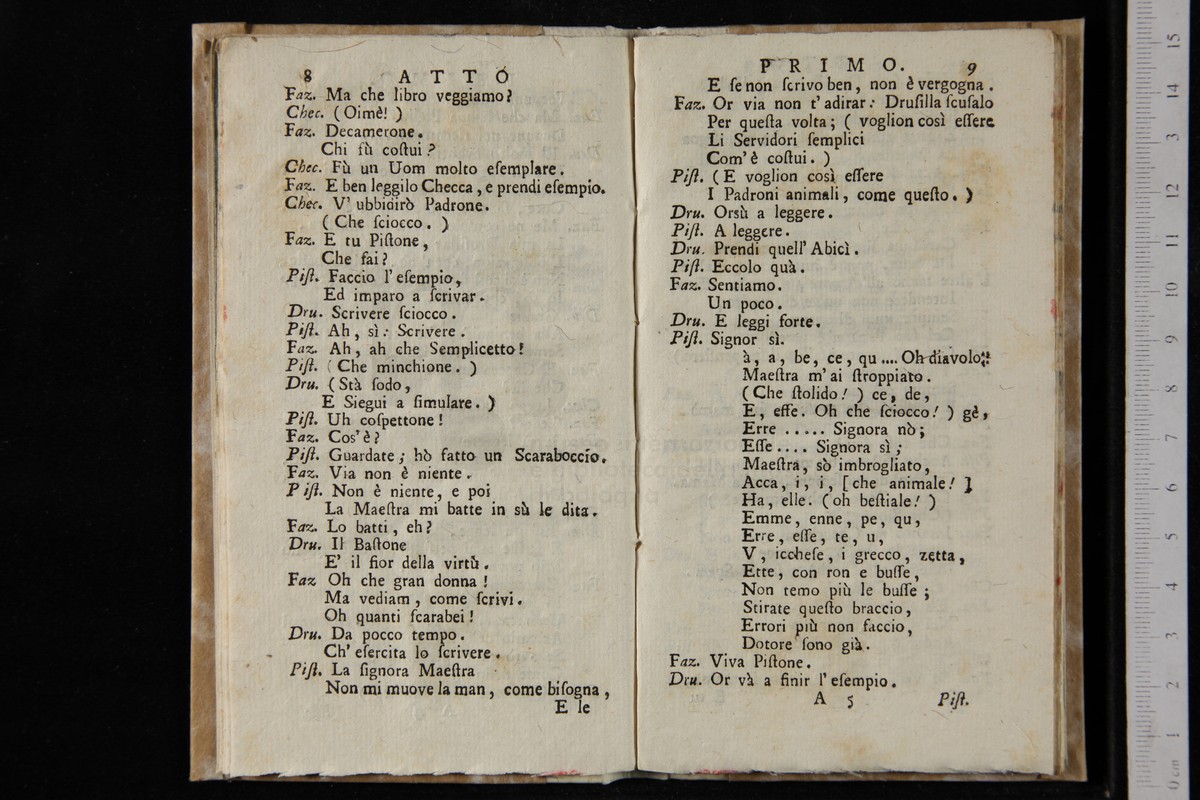 8 ATTO
Faz. Ma che libro veggiamo?
Chec. (Oimè! )
Faz. Decamerone.
Chi fù coſtui?
Chec. Fù un Uom molto eſemplare.
Faz. E ben leggilo Checca, e prendi eſempio.
Chec. V' ubbidirò Padrone.
( Che ſciocco. )
Faz. E tu Piſtone,
Che fai?
Piſt. Faccio l' eſempio,
Ed imparo a ſcrivar.
Dru. Scrivere ſciocco.
Piſt. Ah, sì: Scrivere.
Faz. Ah, ah che Semplicetto!
Piſt. ( Che minchione. )
Dru. (Stà ſodo,
E Siegui a ſimulare. )
Piſt. Uh coſpettone!
Faz. Cos' è?
Piſt. Guardate; hò fatto un Scaraboccio.
Faz. Via non è niente.
Piſt. Non è niente, e poi
La Maeſtra mi batte in sù le dita.
Faz. Lo batti, eh?
Dru. Il Baſtone
E' il fior della virtù.
Faz Oh che gran donna!
Ma vediam, come ſcrivi.
Oh quanti ſcarabei!
Dru. Da pocco tempo.
Ch' eſercita lo ſcrivere.
Piſt. La ſignora Maeſtra
Non mi muove la man, come biſogna,
E ſe
PRIMO. 9
E ſe non ſcrivo ben, non è vergogna.
Faz. Or via non t' adirar: Druſilla ſcuſalo
Per queſta volta; ( voglion così eſſere
Li Servidori ſemplici
Com' è coſtui. )
Piſt. (E voglion così eſſere
I Padroni animali, come queſto. )
Dru. Orsù a leggere.
Piſt. A leggere.
Dru. Prendi quell' Abicì.
Piſt. Eccolo quà.
Faz. Sentiamo.
Un poco.
Dru. E leggi forte.
Piſt. Signor sì.
à, a, be, ce, qu .... Oh diavolo:
Maeſtra m' ai ſtroppiato.
(Che ſtolido! ) ce, de,
E, effe. Oh che ſciocco! ) gè,
Erre ..... Signora nò;
Eſſe .... Signora sì;
Maeſtra, sò imbrogliato,
Acca, i, i, [che animale! ]
Ha, elle. (oh beſtiale! )
Emme, enne, pe, qu,
Erre, eſſe, te, u,
V, iccheſe, i grecco, zetta,
Ette, con ron e buſſe,
Non temo più le buſſe;
Stirate queſto braccio,
Errori più non faccio,
Dotore ſono già.
Faz. Viva Piſtone.
Dru. Or và a finir l' eſempio.
A 5 Piſt.